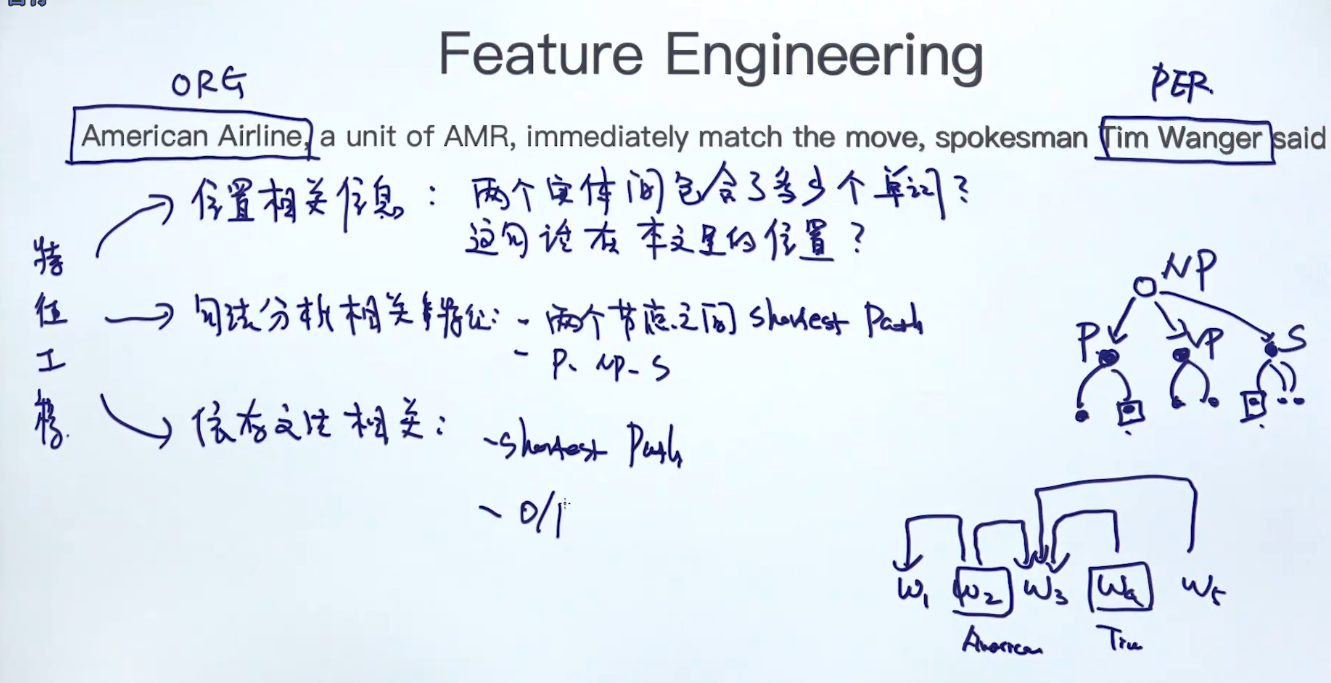 Feature Engineering
ORG
PER
American Airline, a unit of AMR, immediately match the move, spokesman Tim Wanger said
特征工程
位置相关信息: 两个实体间包含了多少个单词?
这句话在本文里的位置?
句法分析相关特征: - 两个节点之间 shortest Path
- P- NP- S
依存文法相关:
- shortest Path
- 0/1
NP
P VP S
W1 W2 W3 W4 W5
American Tim